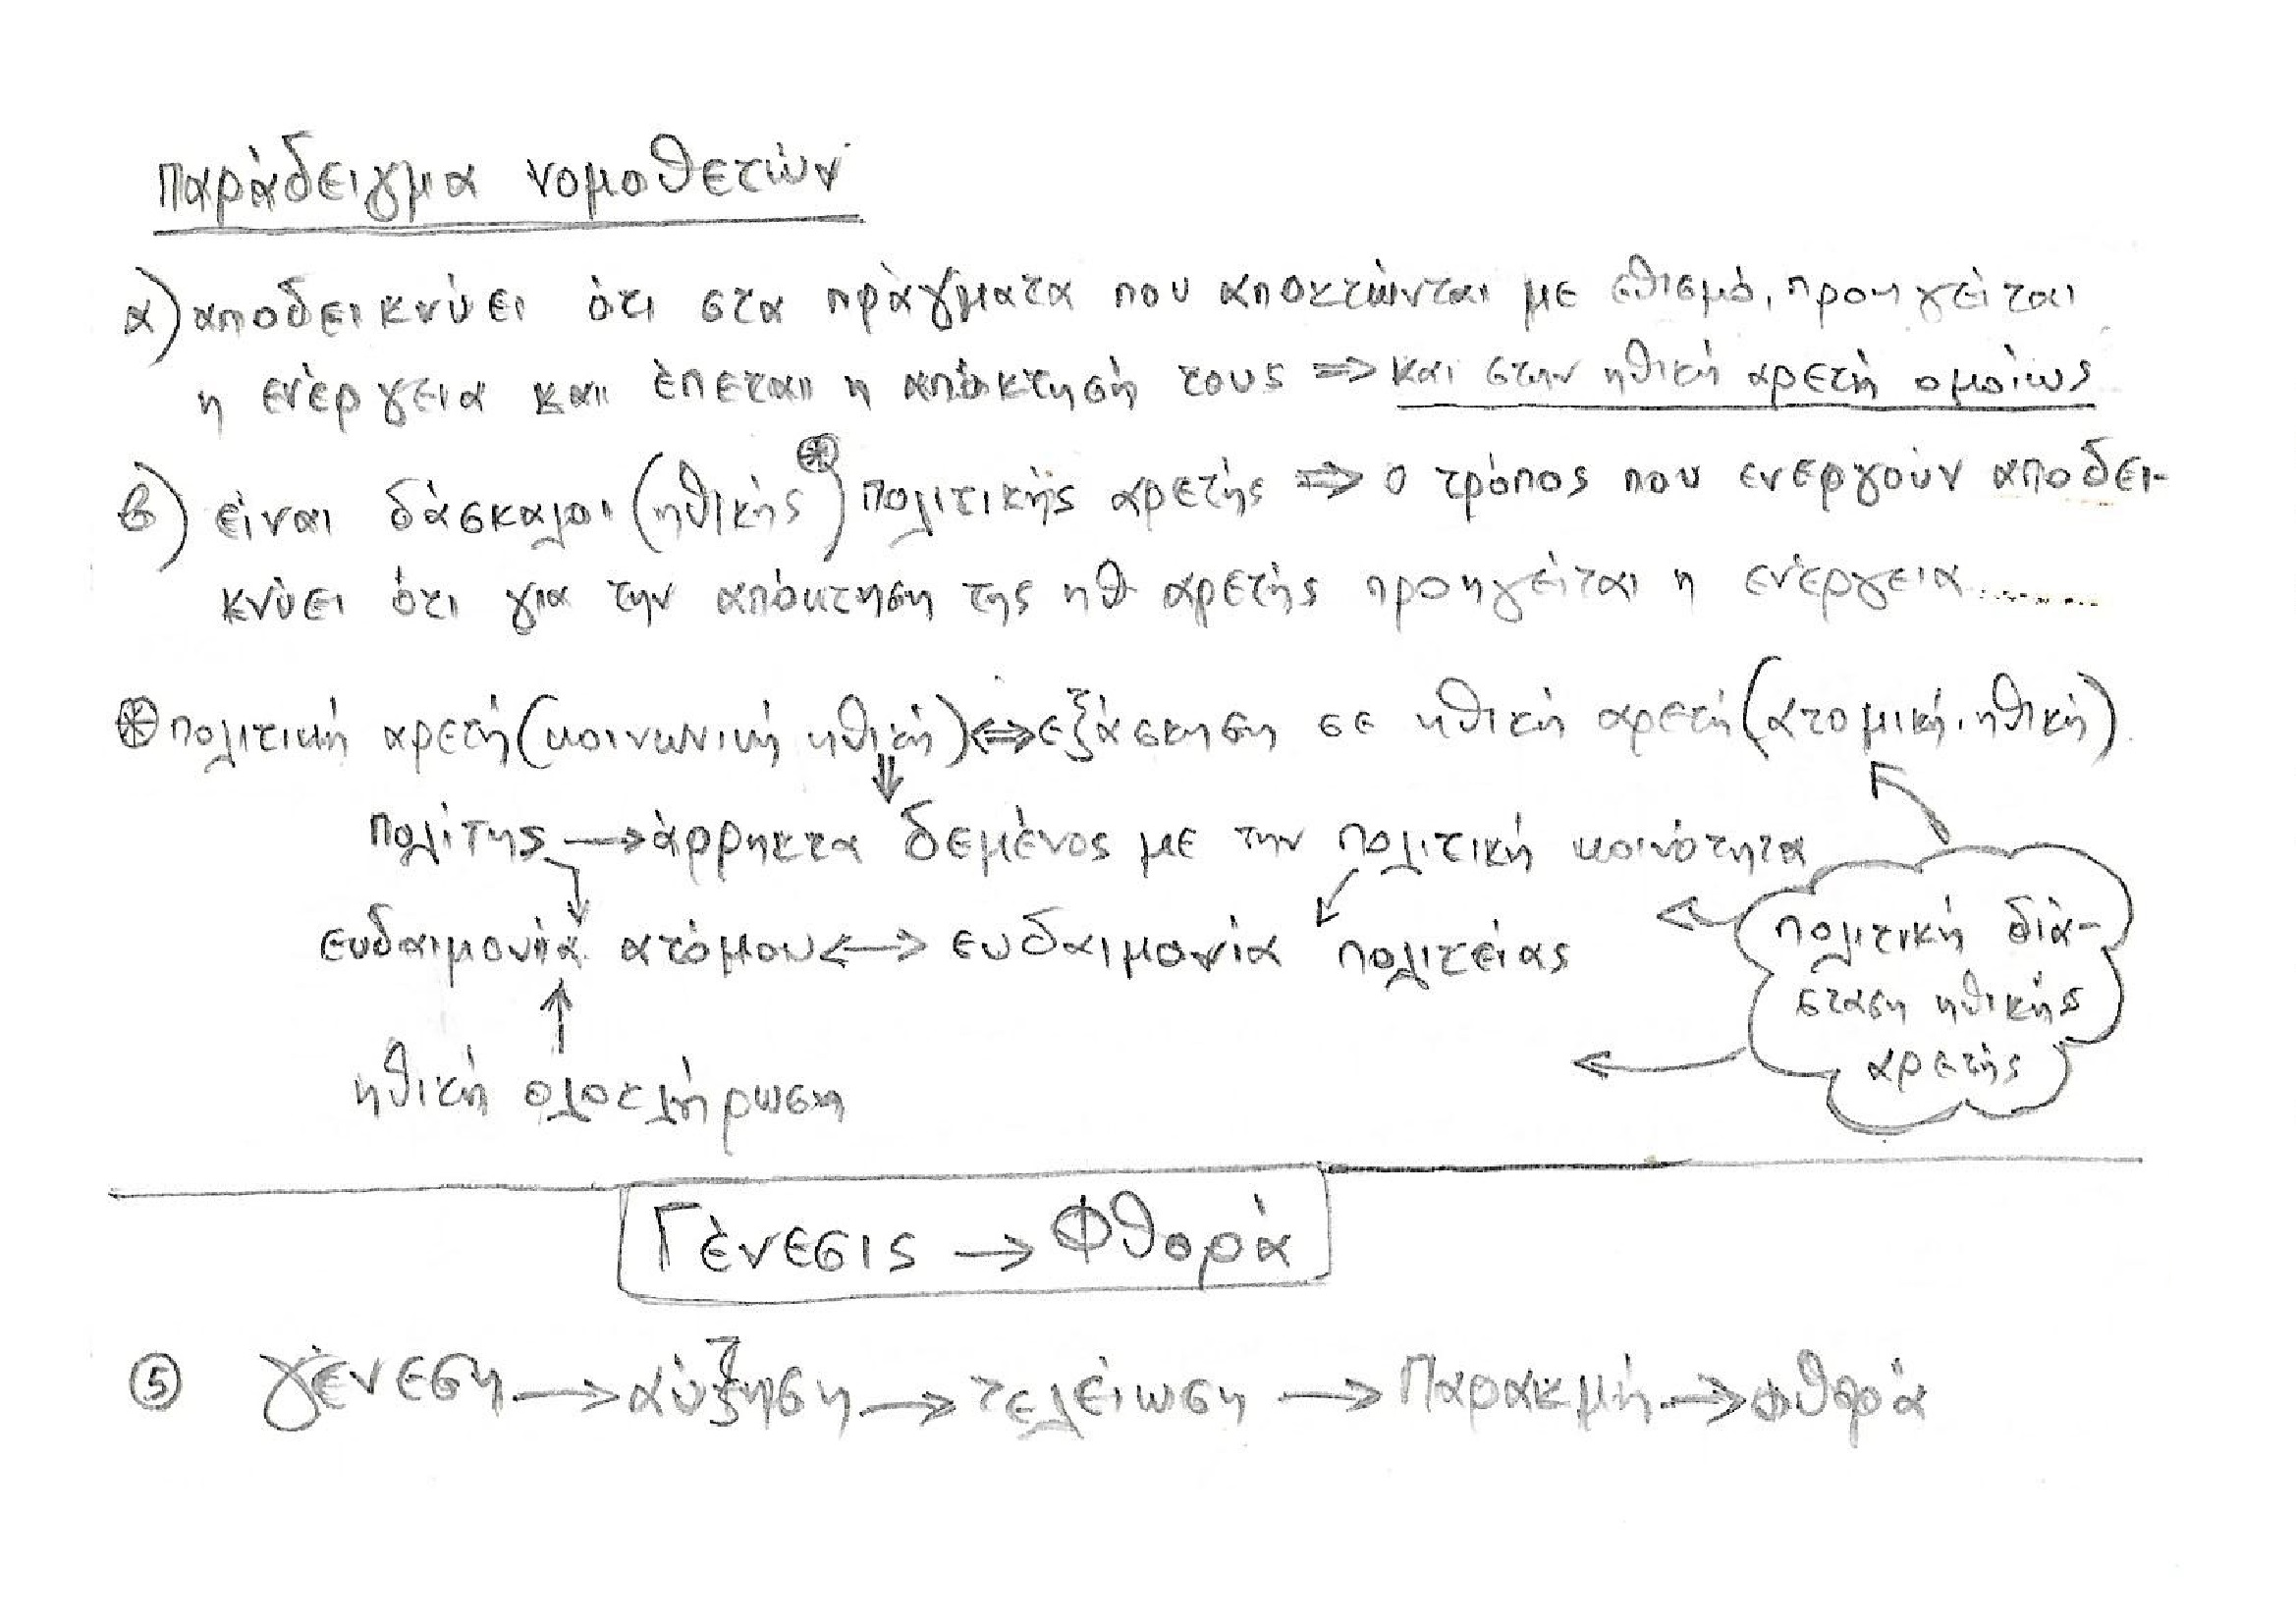 Παράδειγμα νομοθετών
α) αποδεικνύει ότι στα πράγματα που αποκτώνται με εθισμό, προηγείται
η ενέργεια και έπεται η απόκτησή τους ⇒ και στην ηθική αρετή ομοίως
β) είναι δάσκαλοι (ηθικής⊛) πολιτικής αρετής ⇒ ο τρόπος που ενεργούν αποδει-
κνύει ότι για την απόκτηση της ηθ. αρετής προηγείται η ενέργεια........
⊛ πολιτική αρετή (κοινωνική ηθική) ⇔ εξάσκηση σε ηθική αρετή (ατομική ηθική).
⇓
πολίτης → άρρηκτα δεμένος με την πολιτική κοινότητα
ευδαιμονία ατόμου ↔ ευδαιμονία πολιτείας
↑
ηθική ολοκλήρωση
πολιτική διά-
σταση ηθικής
αρετής
Γένεσις → Φθορά
⑤ γένεση → αύξηση → τελείωση → Παρακμή → φθορά